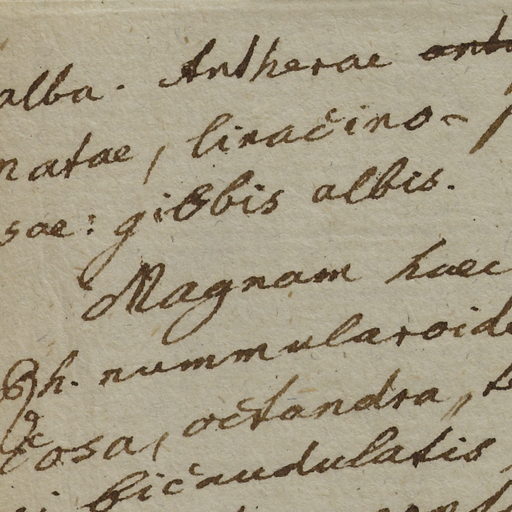 alba. Antherae
natae,
sae: gibbis albis.
Magnam haec
nummularoide
cosa, octandra,
bicaudulatis